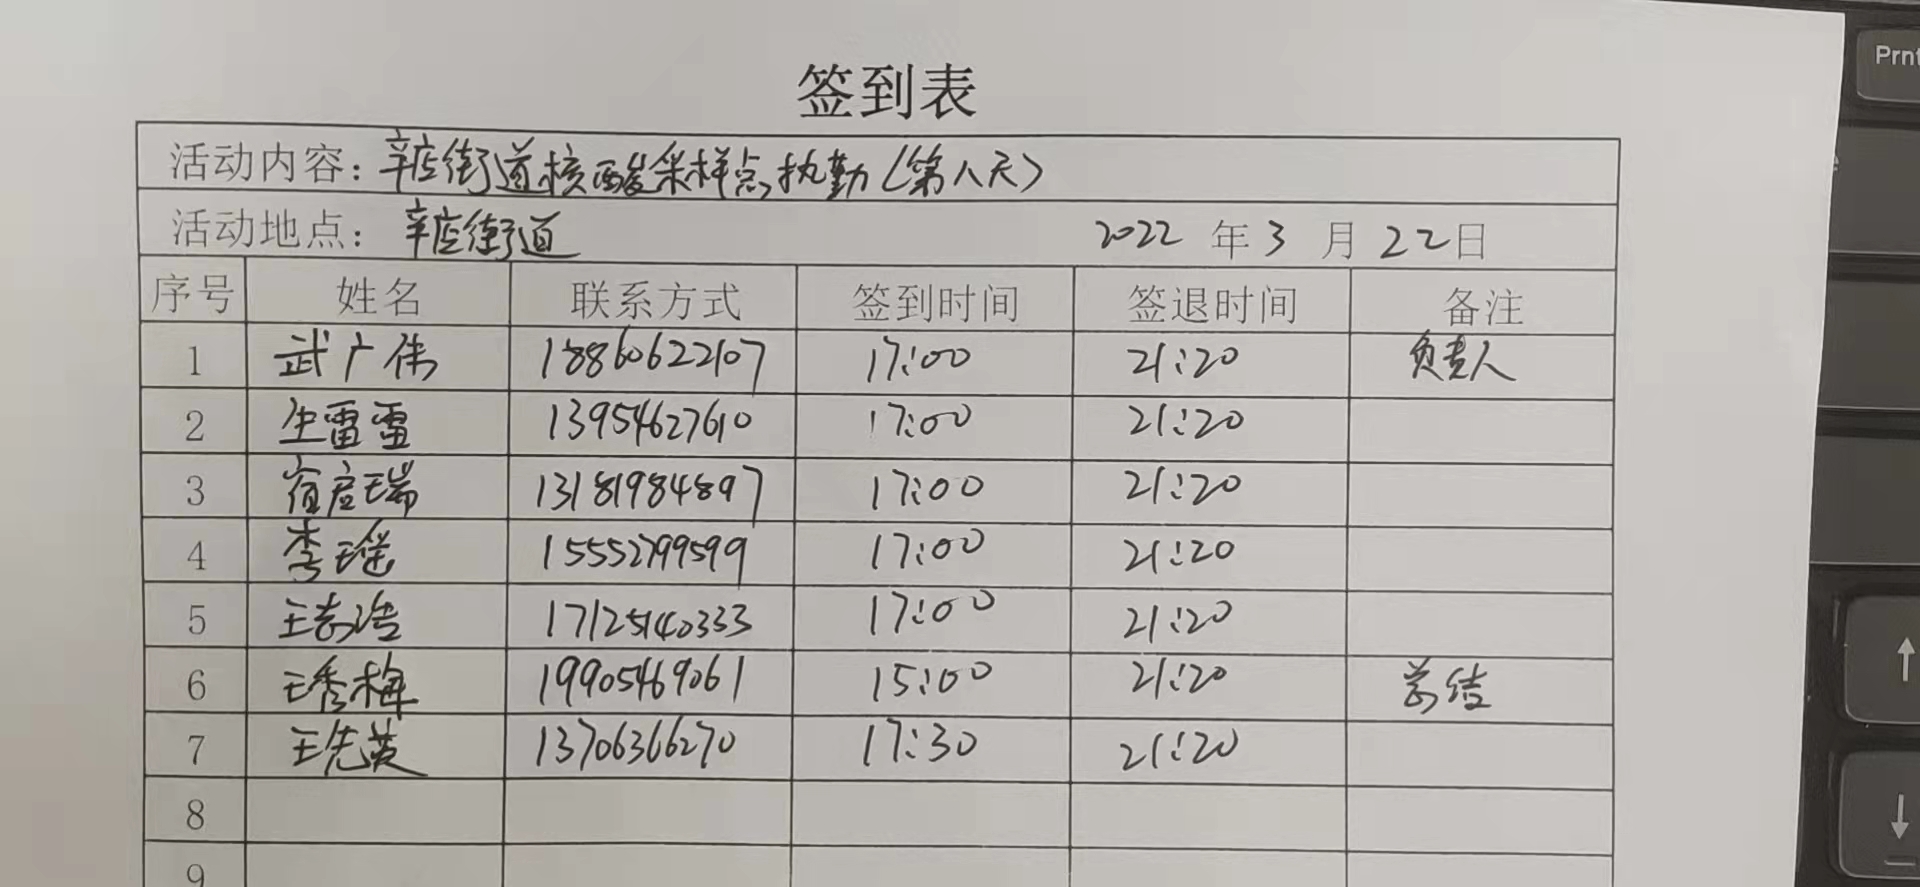 签到表
活动内容：辛店街道核酸采样点执勤（第八天）
活动地点：辛店街道 2022 年 3 月 22 日
序号 姓名 联系方式 签到时间 签退时间 备注
1 武广伟 18860622107 17:00 21:20 负责人
2 生雷雷 13954627610 17:00 21:20
3 瑞 13181984897 17:00 21:20
4 李瑶 15552799599 17:00 21:20
5 王志浩 17125140333 17:00 21:20
6 王秀梅 19905469061 15:00 21:20 总结
7 王先英 13706366270 17:30 21:20
8
9
Prnt
↑
↓